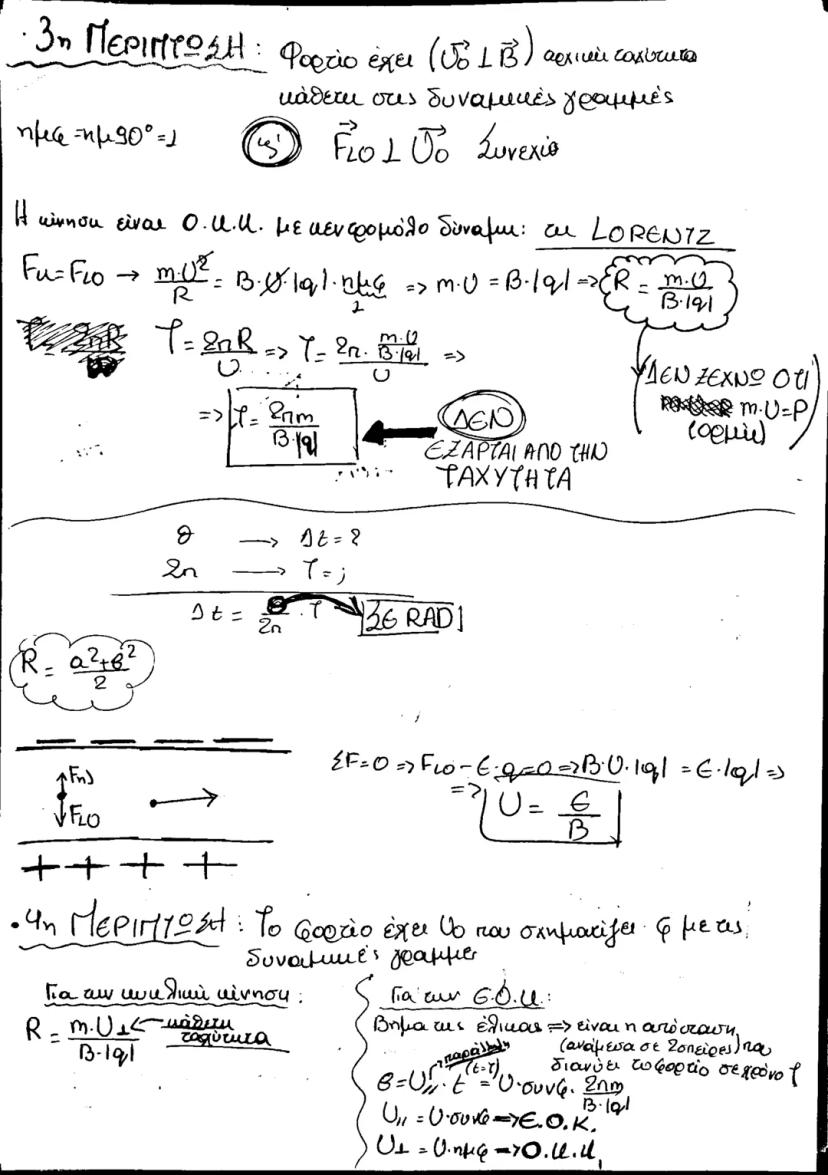 · 3η ΠΕΡΙΠΤΩΣΗ: Φορτίο έχει (U⃗₀ ⊥ B⃗) αρχική ταχύτητα
κάθετη στις δυναμικές γραμμές
ημφ = ημ90° = 1
F⃗LO ⊥ U⃗₀ Συνεχώς
Η κίνηση είναι Ο.Κ.Κ. με κεντρομόλο δύναμη: τη LORENTZ
Fκ = FLO → m·U²/R = B·U·|q|·ημφ => m·U = B·|q| => R = m·U/B·|q|
1
T = 2πR/U => T = 2π · (m·U/B·|q|)/U =>
(ΔΕΝ ΞΕΧΝΩ ΟΤΙ
m·U = P
(ορμή))
=> T = 2πm/B·|q|
ΔΕΝ
ΕΞΑΡΤΑΙ ΑΠΟ ΤΗΝ
ΤΑΧΥΤΗΤΑ
θ → Δt = ?
2π → T = ;
Δt = θ/2π · T ΣΕ RAD
R = α²+β²/2
Fηλ
FLO
ΣF=0 => FLO − E·q=0 => B·U·|q| = E·|q| =>
=> U = E/B
+ + + +
· 4η ΠΕΡΙΠΤΩΣΗ: Το φορτίο έχει U₀ που σχηματίζει φ με τις
δυναμικές γραμμές
Για την κυκλική κίνηση:
R = m·U⊥/B·|q| ← κάθετη
ταχύτητα
Για την Ε.Ο.Κ:
Βήμα της έλικας => είναι η απόσταση
(ανάμεσα σε 2 σπείρες) που
διανύει το φορτίο σε χρόνο T
παράλληλη
(t=T)
β = U∥ · t = U·συνφ · 2πm/B·|q|
U∥ = U·συνφ → Ε.Ο.Κ.
U⊥ = U·ημφ → Ο.Κ.Κ.